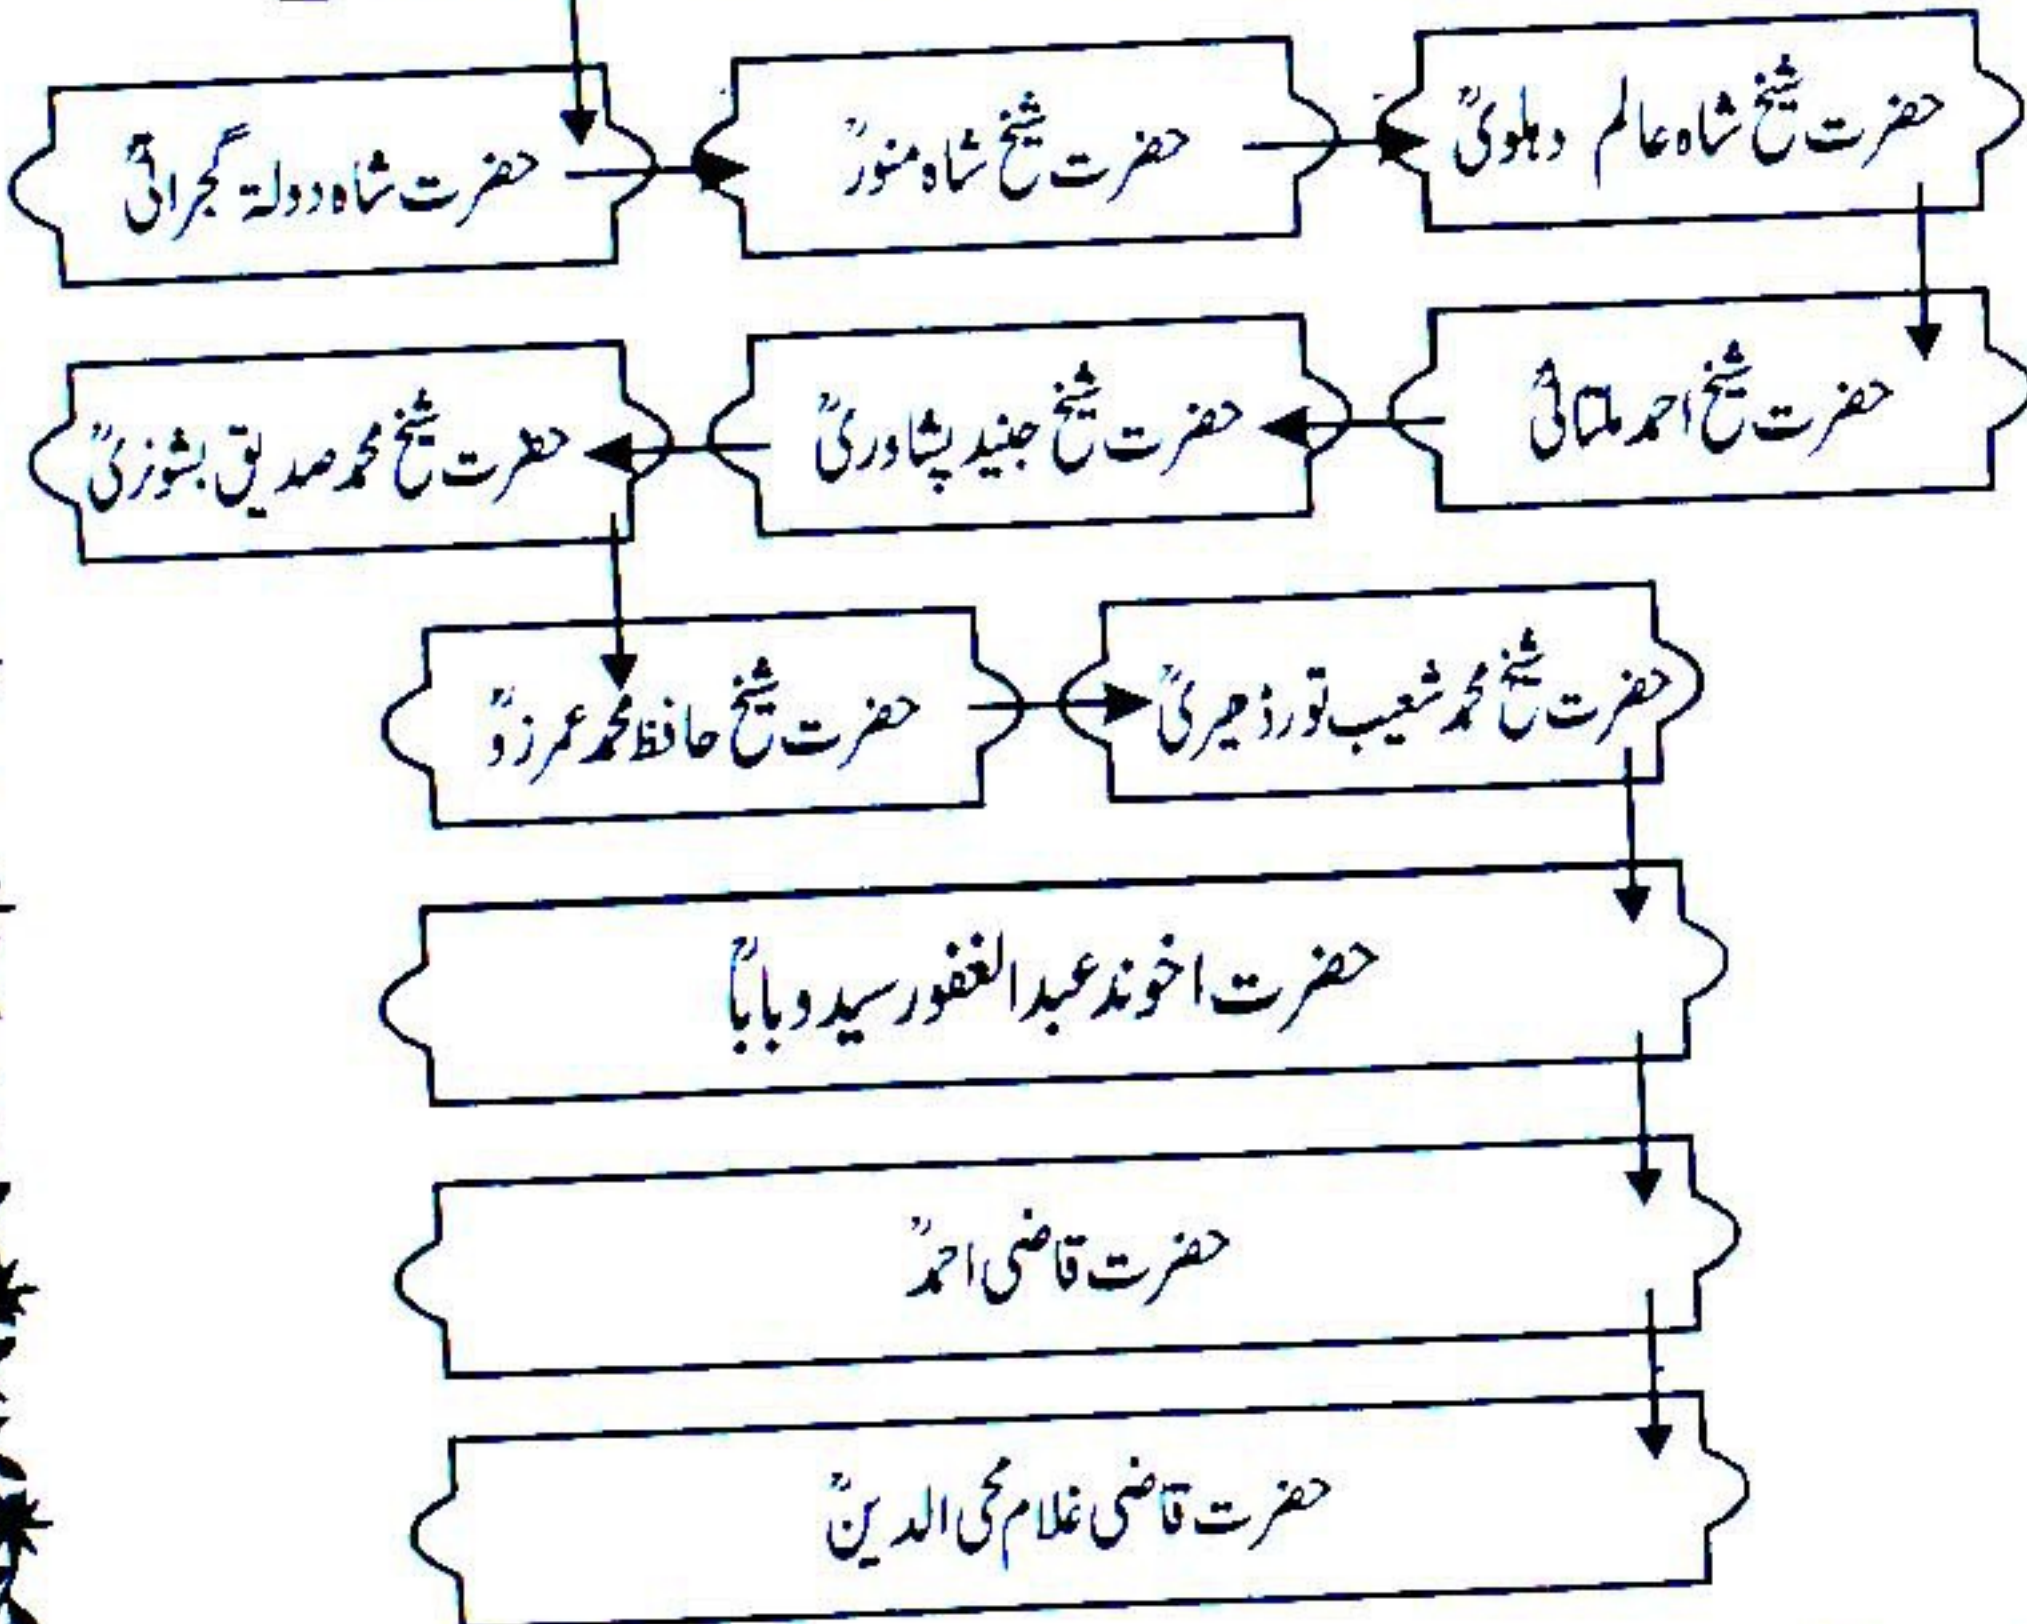 حضرت شاہ دولۃ گجراتیؒ
حضرت شیخ شاہ منورؒ
حضرت شیخ شاہ عالم دہلویؒ
حضرت شیخ احمد ملتانیؒ
حضرت شیخ جنید پشاوریؒ
حضرت شیخ محمد صدیق بشوزیؒ
حضرت شیخ حافظ محمد عمرزوؒ
حضرت شیخ محمد شعیب تورڈھیریؒ
حضرت اخوند عبدالغفور سیدو باباؒ
حضرت قاضی احمدؒ
حضرت قاضی غلام محی الدینؒ